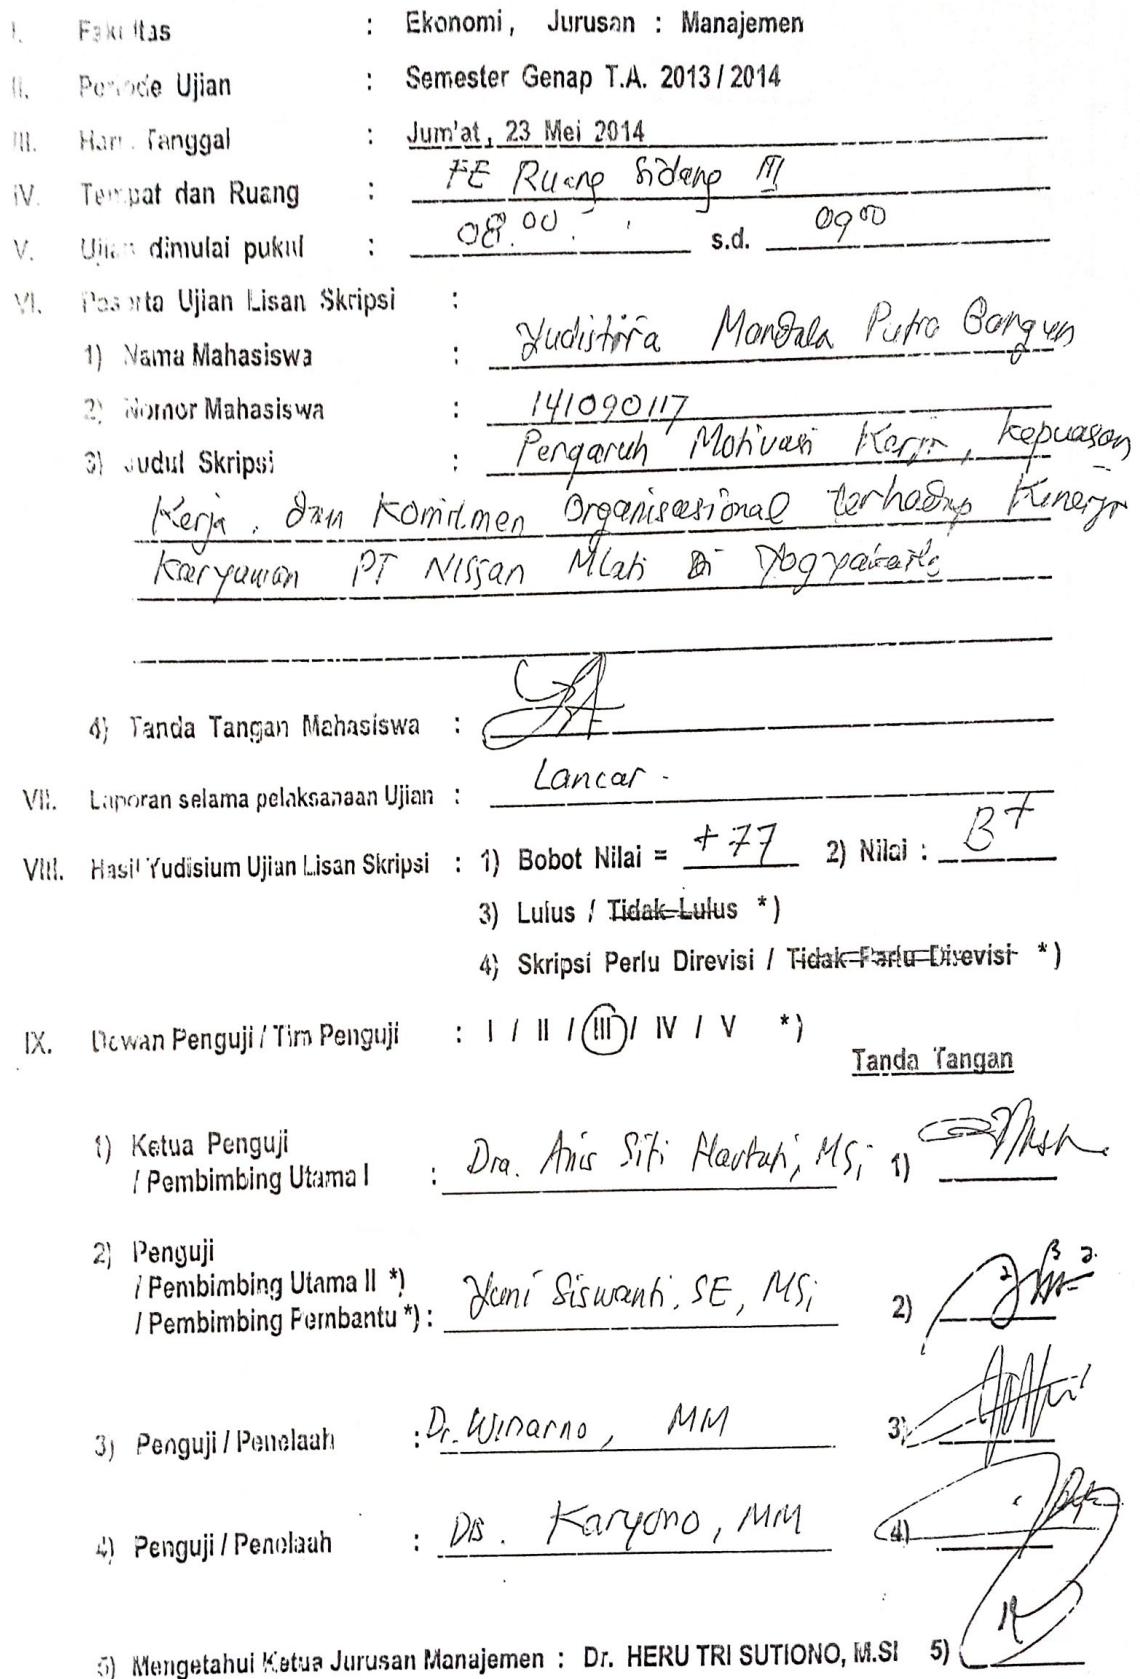 I. Fakultas : Ekonomi, Jurusan : Manajemen
II. Periode Ujian : Semester Genap T.A. 2013 / 2014
III. Hari, Tanggal : Jum'at, 23 Mei 2014
IV. Tempat dan Ruang : FE Ruang Sidang III
V. Ujian dimulai pukul : 08.00 s.d. 09 00
VI. Peserta Ujian Lisan Skripsi :
1) Nama Mahasiswa : Yudistira Mandala Putra Bangun
2) Nomor Mahasiswa : 141090117
3) Judul Skripsi : Pengaruh Motivasi Kerja, kepuasan
Kerja, dan Komitmen Organisasional terhadap Kinerja
Karyawan PT Nissan Mlati Di Yogyakarta
4) Tanda Tangan Mahasiswa :
VII. Laporan selama pelaksanaan Ujian : Lancar.
VIII. Hasil Yudisium Ujian Lisan Skripsi : 1) Bobot Nilai = +77 2) Nilai : B+
3) Lulus / Tidak Lulus *)
4) Skripsi Perlu Direvisi / Tidak Perlu Direvisi *)
IX. Dewan Penguji / Tim Penguji : I / II / III / IV / V *)
Tanda Tangan
1) Ketua Penguji
/ Pembimbing Utama I : Dra. Anis Siti Hartati, MSi 1)
2) Penguji
/ Pembimbing Utama II *)
/ Pembimbing Pembantu *) : Yuni Siswanti, SE, MSi 2)
3) Penguji / Penelaah : Dr. Winarno, MM 3)
4) Penguji / Penelaah : Drs. Karyono, MM 4)
5) Mengetahui Ketua Jurusan Manajemen : Dr. HERU TRI SUTIONO, M.SI 5)